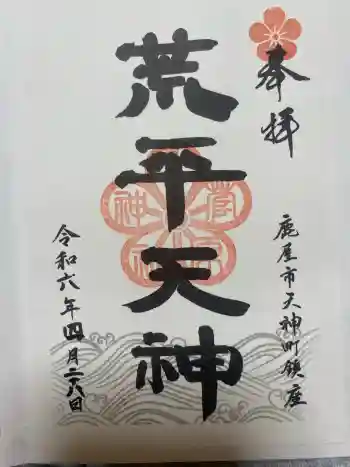 奉拝
鹿屋市天神町鎮座
荒平天神
令和六年四月二八日